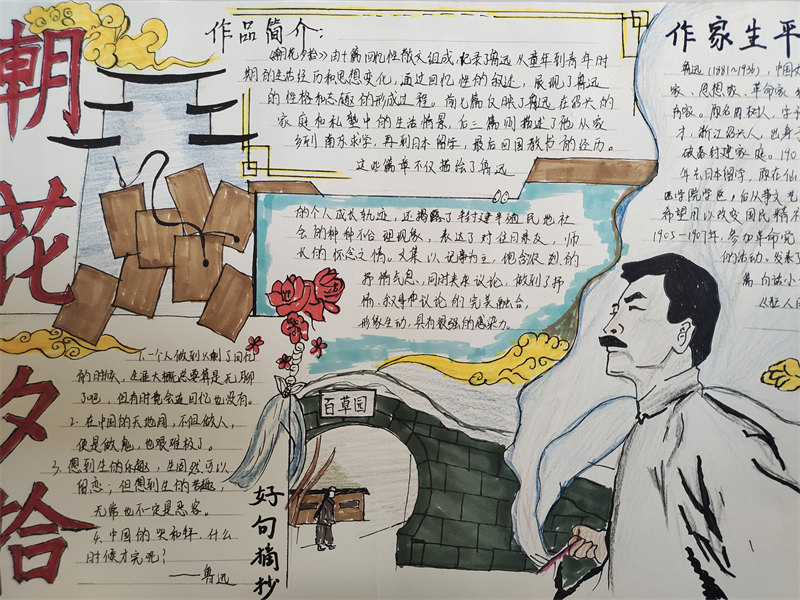 朝花夕拾
作品简介:
《朝花夕拾》由十篇回忆性散文组成,记录了鲁迅从童年到青年时
期的生活经历和思想变化,通过回忆性的叙述,展现了鲁迅
的性格和志趣的形成过程。前七篇反映了鲁迅在绍兴的
家庭和私塾中的生活情景,后三篇则描述了他从家
乡到南京求学,再到日本留学,最后回国教书的经历。
这些篇章不仅描绘了鲁迅
的个人成长轨迹,还揭露了半封建半殖民地社
会的种种不合理现象,表达了对往日亲友、师
长的怀念之情。文集以记事为主,饱含浓烈的
抒情气息,同时夹杂议论,做到了抒
情、叙事和议论的完美融合,
形象生动,具有很强的感染力。
作家生平
鲁迅(1881~1936),中国
家、思想家、革命家
育家。原名周树人,字
才,浙江绍兴人,出身
破落封建家庭。190
年去日本留学,原在仙
医学院学医,后从事文艺
希望用以改变国民精
1905—1907年,参加革命党
的活动。发表了
篇白话小
《狂人日
1、一个人做到只剩了回忆
的时候,生涯大概总要算是无聊
了吧,但有时竟会连回忆也没有。
2、在中国的天地间,不但做人,
便是做鬼,也艰难极了。
3、想到生的乐趣,生固然可以
留恋;但想到生的苦趣,
无常也不一定是恶客。
4、中国的哭和拜,什么
时候才完呢?
——鲁迅
好句摘抄
百草园